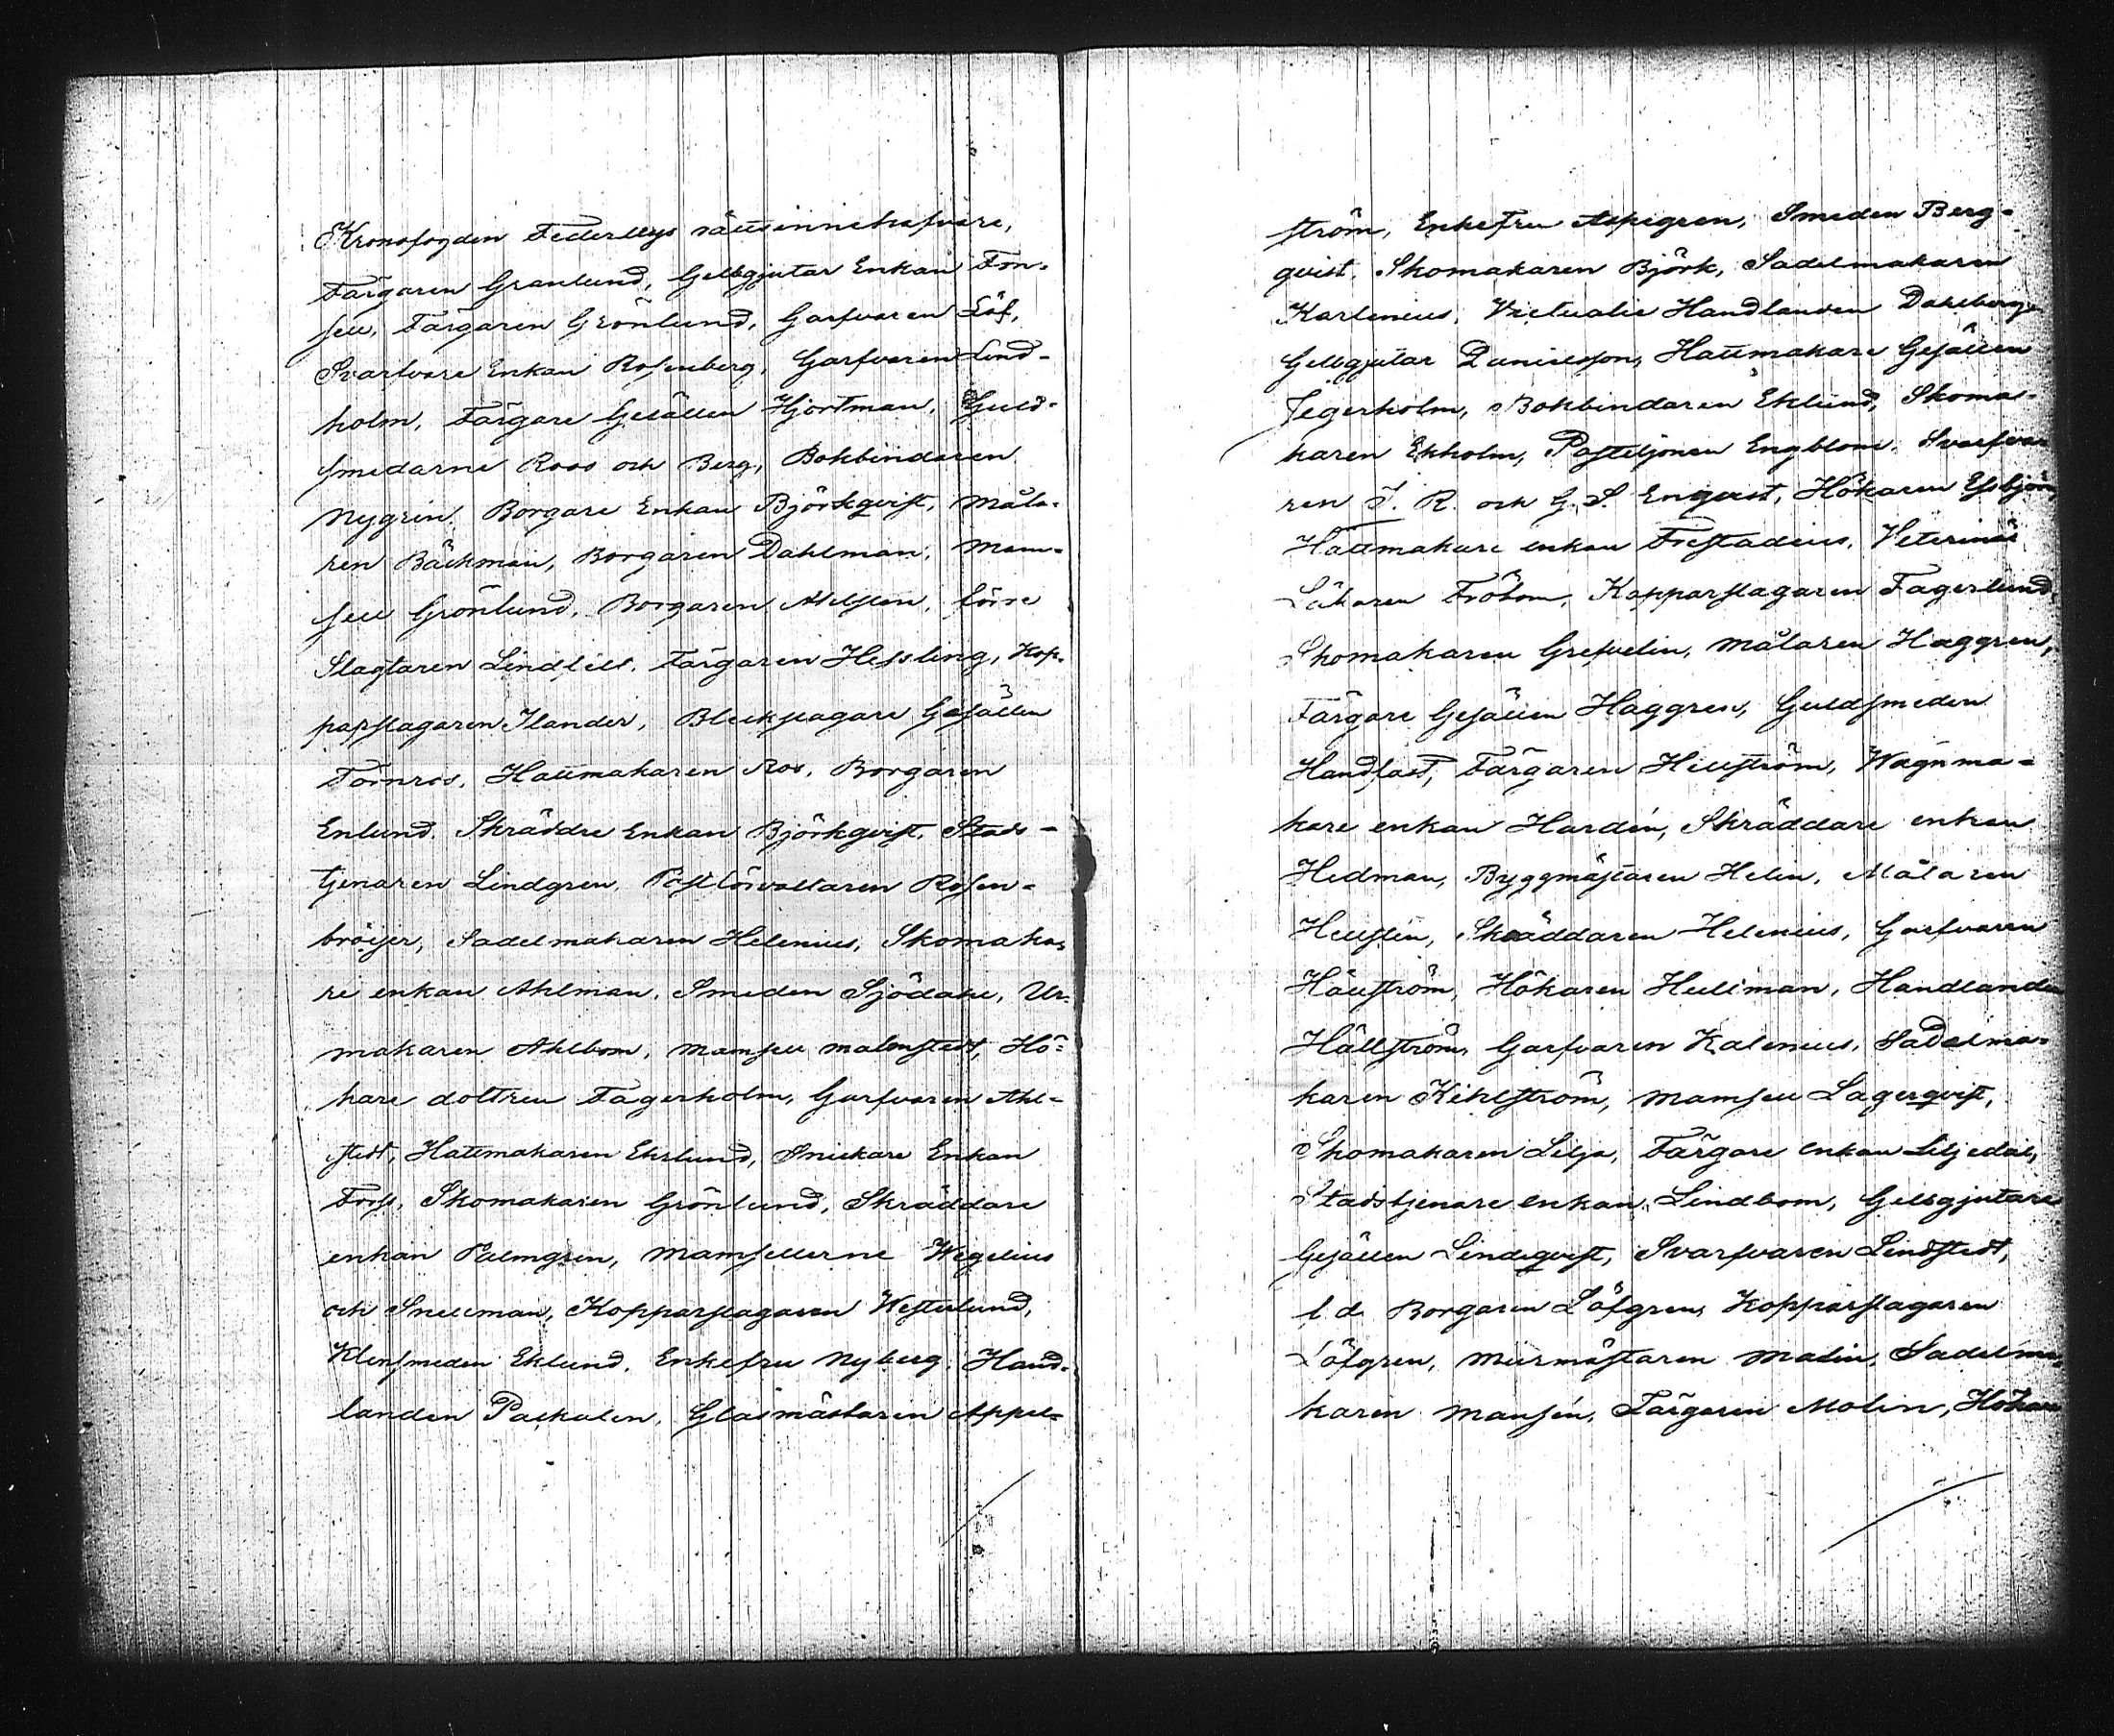 Kronofogden Federleys rättsinnehafvare,
Färgaren Granlund, Gelbgjutar Enkan Fon-
sell, Färgaren Grönlund, Garfvaren Löf,
Svarfvare Enkan Rosenberg, Garfvaren Lind-
holm, Färgare Gesällen Hjortman, Guld-
smedarne Roos och Berg, Bokbindaren
Nygren, Borgare Enkan Björkqvist, Måla-
ren Bäckman, Borgaren Dahlman, Mam-
sell Grönlund, Borgaren Ahlsten, förre
Slagtaren Lindfelt, Färgaren Hessling, Kop-
parslagaren Ilander, Bleckslagare Gesällen
Törnros, Hattmakaren Ros, Borgaren
Enlund, Skräddre Enkan Björkqvist, Stads-
tjenaren Lindgren, Postförvaltaren Rosen-
bröijer, Sadelmakaren Helenius, Skomaka-
re enkan Ahlman, Smeden Sjödahl, Ur-
makaren Ahlbom, Mamsell Malmstedt, Hö-
kare dottren Fagerholm, Garfvaren Ahl-
stedt, Hattmakaren Ekelund, Snickare Enkan
Forss, Skomakaren Grönlund, Skräddare
enkan Palmgren, Mamsellerne Wegelius
och Snellman, Kopparslagaren Westerlund,
Klensmeden Eklund, Enkefru Nyberg, Hand-
landen Packalen, Glasmästaren Appel-
ström, Enkefru Aspegren, Smeden Berg-
qvist, Skomakaren Björk, Sadelmakaren
Karlenius, Victualie Handlanden Dahlberg,
Gelbgjutar Danielsson, Hattmakare Gesällen
Jegerholm, Bokbindaren Eklund, Skoma-
karen Ekholm, Posteljonen Engblom, Svarfva-
ren J. R. och G. S. Enqvist, Hökaren Esbjörn
Hattmakare enkan Frestadius, Veterinär
Läkaren Fröbom, Kopparslagaren Fagerlund,
Skomakaren Grefvelin, Målaren Haggren,
Färgare Gesällen Haggren, Guldsmeden
Handfast, Färgaren Hellström, Wagnma-
kare enkan Hardén, Skräddare enkan
Hedman, Byggmästaren Helin, Målaren
Hellstén, Skräddaren Helenius, Garfvaren
Hällström, Hökaren Hellman, Handlanden
Hällström, Garfvaren Kalenius, Sadelma-
karen Kihlström, Mamsell Lagerqvist,
Skomakaren Lilja, Färgare enkan Liljedal,
Stadstjenare enkan Lindbom, Gelbgjutare
Gesällen Lindeqvist, Svarfvaren Lindstedt,
f. d. Borgaren Löfgren, Kopparslagaren
Löfgren, Murmästaren Malin, Sadelma-
karen Mansén, Färgaren Molin, Hökare